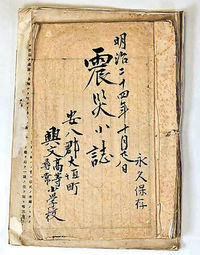 明治二十四年十月廿八日
震災小誌
永久保存
安八郡大垣町
興文高等尋常小学校